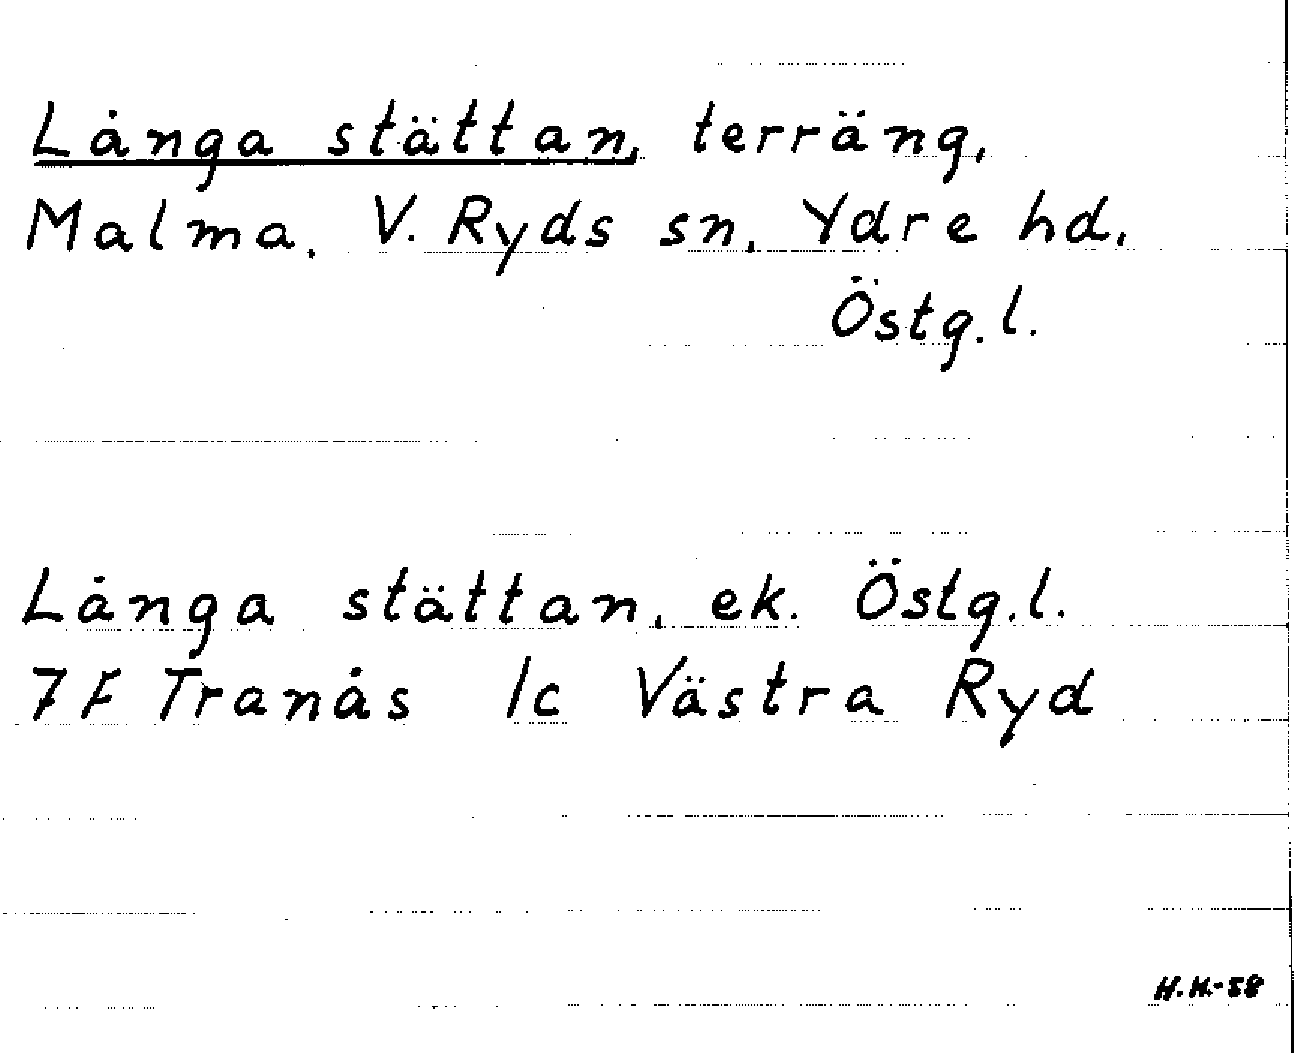 Långa stättan, terräng,
Malma, V. Ryds sn, Ydre hd,
Östg. l.
Långa stättan, ek. Östg. l.
7F Tranås 1c Västra Ryd
H.H.-58